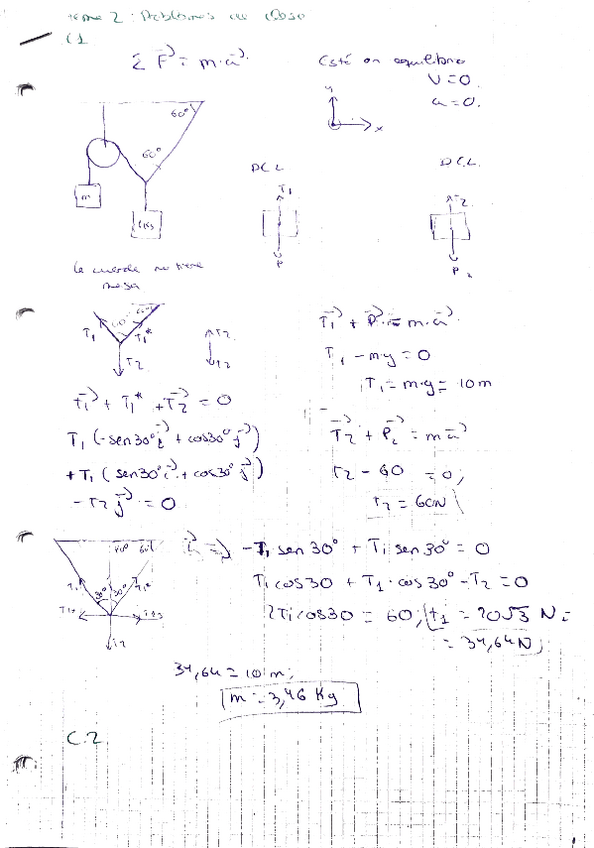 Tema 2: Problemas de clase
C1
Σ F⃗ = m·a⃗
Está en equilibrio
v=0
a=0.
y
x
60°
60°
m
D.C.L
T1
P
D.C.L.
T2
P2
la cuerda no tiene
masa
T1
T1*
T2
T2
T2
T⃗1 + P⃗ = m·a⃗
T1 - m·g = 0
T1 = m·g = 10m
T⃗1 + T⃗1* + T⃗2 = 0
T1 (-sen30° i⃗ + cos30° j⃗)
+ T1 (sen30° i⃗ + cos30° j⃗)
- T2 j⃗ = 0
T⃗2 + P⃗2 = m a⃗
T2 - 60 = 0;
T2 = 60N
60°
30° 30°
T2
-T1 sen30° + T1 sen30° = 0
T1 cos30 + T1·cos30° - T2 = 0
2T1 cos30 = 60; T1 = 20√3 N =
= 34,64N;
34,64 = 10 m;
m = 3,46 Kg
C.2